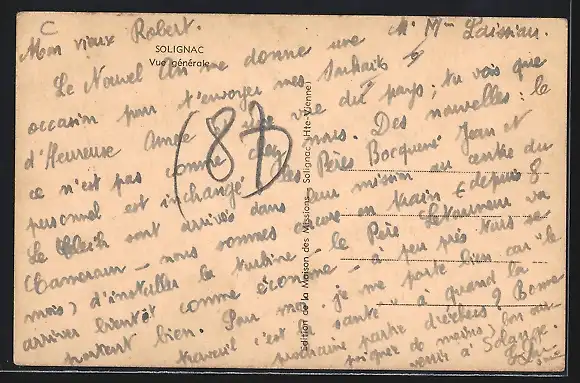 C
Mon vieux Robert.
M. Mme Loisniau.
SOLIGNAC
Vue générale
Le Nouvel An me donne une
occasion pour t'envoyer mes souhaits
d'Heureuse Année & une vue du pays; tu vois que
ce n'est pas comme chez nous. Des nouvelles: le
personnel est inchangé. Les Pères Bocquené Jean et
Le Bleih sont arrivés dans leur mission au centre du
Cameroun – nous sommes encore en train (depuis 8
mois) d'installer la turbine – le Père Letourneur va
arriver bientôt comme économe – à peu près tous se
portent bien. Pour moi, je me porte bien car "le
travail c'est la santé" à quand la
prochaine partie d'échecs? Bonne
poignée de mains, bon
à Solange.
(81)
Edition de la Maison des Missions - Solignac (Hte-Vienne)